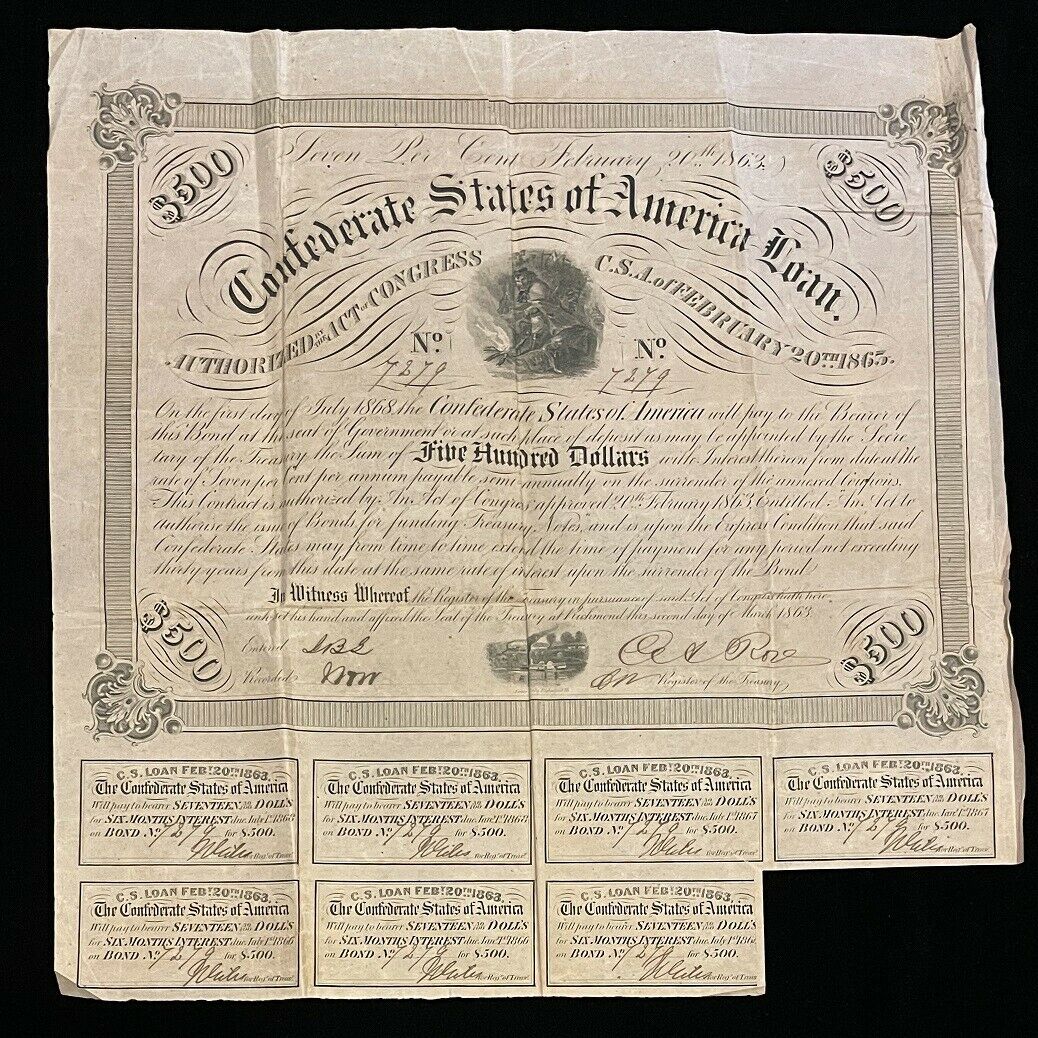 Seven Per Cent February 20th 1863
$500
$500
Confederate States of America Loan.
AUTHORIZED BY THE ACT OF CONGRESS C.S.A. of FEBRUARY 20TH 1863.
No. No.
7279 7279
On the first day of July 1868 the Confederate States of America will pay to the Bearer of
this Bond at the seat of Government or at such place of deposit as may be appointed by the Secre
tary of the Treasury the Sum of Five Hundred Dollars with Interest therein from date at the
rate of Seven per Cent per annum payable semi-annually on the surrender of the annexed Coupons.
This Contract is authorized by An Act of Congress approved 20th February 1863, Entitled "An Act to
authorise the issue of Bonds for funding Treasury Notes" and is upon the Express Condition that said
Confederate States may from time to time extend the time of payment for any period not exceeding
thirty years from this date at the same rate of interest upon the surrender of the Bond
In Witness Whereof the Register of the Treasury in pursuance of said Act of Congress hath here
unto set his hand and affixed the Seal of the Treasury at Richmond this second day of March 1863.
$500
$500
Entered
Recorded
Register of the Treasury
C.S. LOAN FEBY 20TH 1863,
The Confederate States of America
Will pay to bearer SEVENTEEN 50/100 DOLL'S
for SIX MONTHS INTEREST due July 1st 1868
on BOND No. 7279 for $.500.
for Regr. of Treasr.
C.S. LOAN FEBY 20TH 1863,
The Confederate States of America
Will pay to bearer SEVENTEEN 50/100 DOLL'S
for SIX MONTHS INTEREST due Jany 1st 1868
on BOND No. 7279 for $.500.
for Regr. of Treasr.
C.S. LOAN FEBY 20TH 1863,
The Confederate States of America
Will pay to bearer SEVENTEEN 50/100 DOLL'S
for SIX MONTHS INTEREST due July 1st 1867
on BOND No. 7279 for $.500.
for Regr. of Treasr.
C.S. LOAN FEBY 20TH 1863,
The Confederate States of America
Will pay to bearer SEVENTEEN 50/100 DOLL'S
for SIX MONTHS INTEREST due Jany 1st 1867
on BOND No. 7279 for $.500.
for Regr. of Treasr.
C.S. LOAN FEBY 20TH 1863,
The Confederate States of America
Will pay to bearer SEVENTEEN 50/100 DOLL'S
for SIX MONTHS INTEREST due July 1st 1866
on BOND No. 7279 for $.500.
for Regr. of Treasr.
C.S. LOAN FEBY 20TH 1863,
The Confederate States of America
Will pay to bearer SEVENTEEN 50/100 DOLL'S
for SIX MONTHS INTEREST due Jany 1st 1866
on BOND No. 7279 for $.500.
for Regr. of Treasr.
C.S. LOAN FEBY 20TH 1863,
The Confederate States of America
Will pay to bearer SEVENTEEN 50/100 DOLL'S
for SIX MONTHS INTEREST due July 1st
on BOND No. 7279 for $.500.
for Regr. of Treasr.